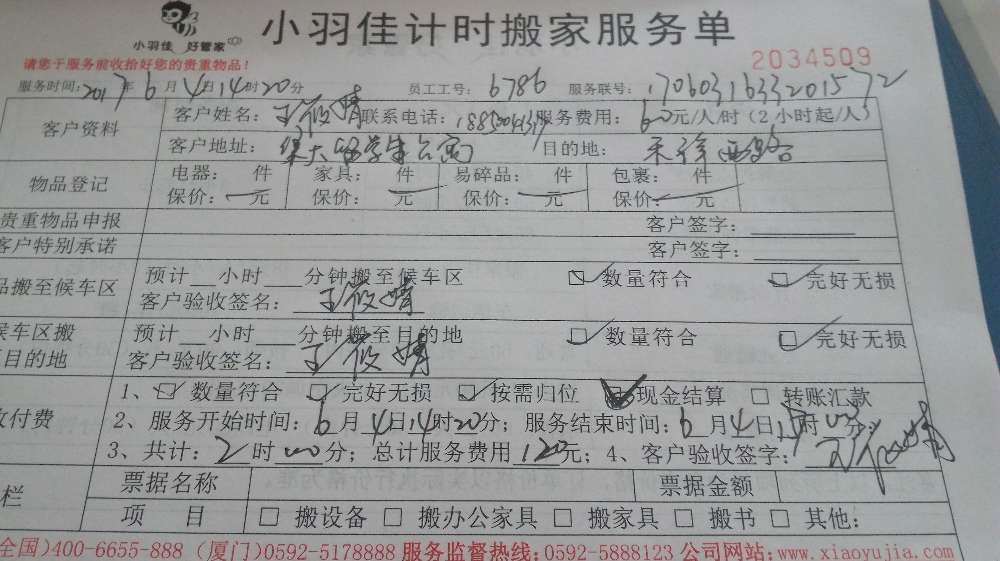 小羽佳 好管家
小羽佳计时搬家服务单
请您于服务前收拾好您的贵重物品!
2034509
服务时间:2017年6月4日14时20分 员工工号: 6786 服务联号:
客户资料
客户姓名: 联系电话: 服务费用: 60元/人/时(2小时起/人)
客户地址: 目的地:
物品登记
电器: 件 家具: 件 易碎品: 件 包裹: 件
保价: 元 保价: 元 保价: 元 保价: 元
贵重物品申报 客户签字:
客户特别承诺 客户签字:
品搬至候车区
预计 小时 分钟搬至候车区 数量符合 完好无损
客户验收签名:
候车区搬
目的地
预计 小时 分钟搬至目的地 数量符合 完好无损
客户验收签名:
付费
1、 数量符合 完好无损 按需归位 现金结算 转账汇款
2、服务开始时间: 6月4日14时20分; 服务结束时间: 6月4日 时00分
3、共计: 2时00分; 总计服务费用 120元; 4、客户验收签字:
栏
票据名称 票据金额
项 目 搬设备 搬办公家具 搬家具 搬书 其他:
全国)400-6655-888 (厦门)0592-5178888 服务监督热线:0592-5888123 公司网站:www.xiaoyujia.com